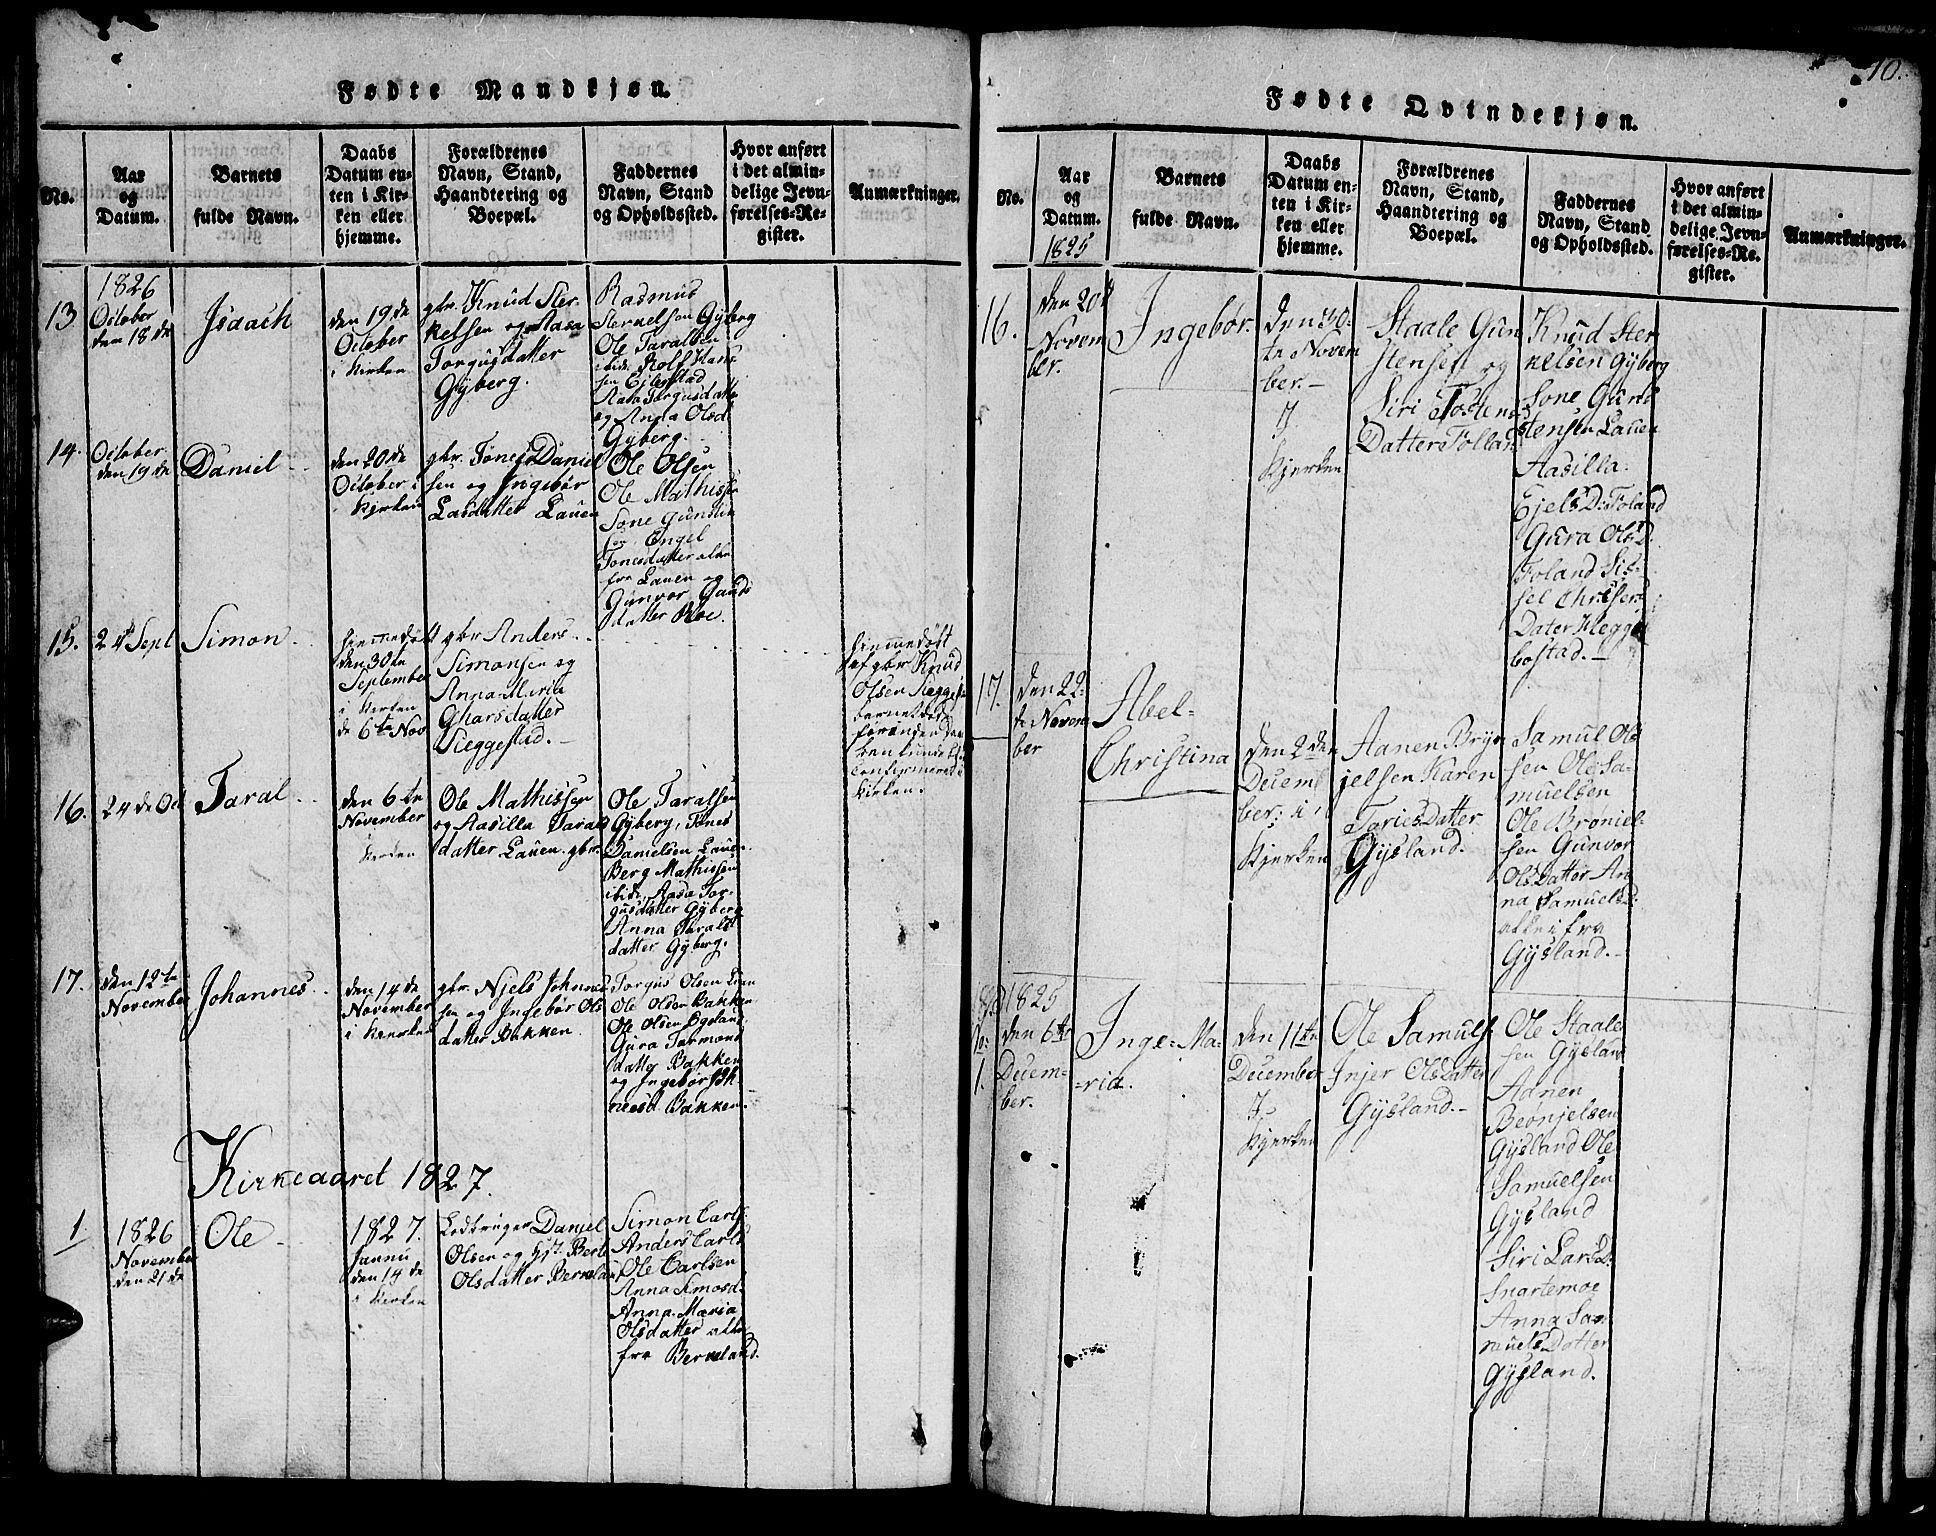 Fødte Mandkjøn.
No.
Aar
og
Datum.
Barnets
fulde Navn.
Daabs
Datum en-
ten i Kir-
ken eller
hjemme.
Forældrenes
Navn, Stand,
Haandtering og
Boepæl.
Faddernes
Navn, Stand
og Opholdssted.
Hvor anført
i det almin-
delige Jevn-
førelses-Re-
gister.
Anmærkninger.
13
1826
October
den 18de
Isaach
den 19de
October
i Kirken
gbr. Knud Ster
kelsen og Aasa
Torgusdatter
Gyberg.
Rasmus
Sterkelsen Gyberg
Ole Taralsen
ibide Rolf Hans
sen Ejlestad
Aasa Torgusdatter
og Anna Olsd
Gyberg.
14.
October
den 19de
Daniel
den 20de
October i
Kirken
gbr. Tønes Daniel
sen og Ingebor
Lasdatter Lauen
Ole Olsen
Ole Mathissen
Sone Gunstin
sen Engel
Tonesdatter alle
fra Lauen og
Gunvor Gaud
datter Roe.
15.
24 Sept
Simon
hjemmedøbt
den 30te
September
i Kirken
de 6te Nov
gbr Anders
Simonsen og
Anna Maria
Gharsdatter
Sieggestad.
hjemmedøbt
af gbr Knud
Olsen Siegges
barnet døde
forinden den
den kunde bl
Confirmered i
Kirken.
16.
24de Oct
Taral
den 6te
November
Kirken
Ole Mathissen
og Aasilla Tarals
datter Lauen. gbr.
Ole Taralsen
Gyberg, Tønes
Danielsen Lauen
Berg Mathissen
ibide, Aasa Tor-
gusdatter Gyberg
Anna Tarals
datter Gyberg.
17.
den 12te
November
Johannes
den 14de
November
i Kirken
gbr. Njels Johannes
sen og Ingebør Ols
datter Bakken
Torgus Olsen
Ole Olsen Bakken
Ole Olsen Egeland
Gura Tarmons
datter Bakken
og Ingebør Joh
neesd Bakken.
Kirkeaaret 1827.
1
1826
November
den 21de
Ole
1827.
Januu
den 14de
i Kirken
Ledbruger Daniel
Olsen og Hst Berte
Olsdatter Berveland
Simon Carls
Anders Carls
Ole Carlsen
Anna Simosd.
Anna Maria
Olsdatter alle
fra Berveland.
10.
Fødte Qvindekjøn.
No.
Aar
og
Datum.
1825
Barnets
fulde Navn.
Daabs
Datum en-
ten i Kir-
ken eller
hjemme.
Forældrenes
Navn, Stand,
Haandtering og
Boepæl.
Faddernes
Navn, Stand
og Opholdssted.
Hvor anført
i det almin-
delige Jevn-
førelses-Re-
gister.
Anmærkninger.
16.
den 20d
Novem
ber.
Ingebør.
den 30-
te Novem
ber.-
I
Kjerken
Staale Gun
stensen og
Siri Tostens
Datter Follan
Knud Ster
kelsen Gyberg
Sone Guns
tensen Lauen
Aasilla
Ejels D: Foland
Gura Ols D.
Foland Sis-
sel Chrisens
Dater Hegge
bostad.-
17.
den 22-
te Novem
ber
Abel-
Christina
den 2den
Decem
ber: i
Kjerken
Aanen Bryn
jelsen Karen
Tories Datter
Gysland.
Samul Ols
sen Ole Sa-
muelsen
Ole Broniel-
sen Gunvor
Ols Datter An
na Samuels D:
alle i fra
Gysland.-
1825
No:
1.
den 6te
Decem-
ber.
Inge-Ma-
ria.
den 11te
December
I
Kjerken
Ole Samuls
Injer Ols Datter
Gysland.-
Ole Staale
sen Gysland
Aanen
Beonjelsen
Gysland Ole
Samuelsen
Gysland
Siri Lars D:
Snartemoe
Anna Sa
muels Datter
Gysland.